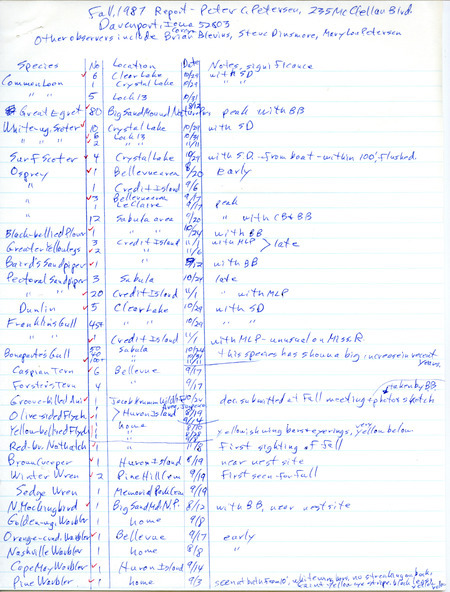 Fall, 1987 Report - Peter C. Petersen, 235 McClellan Blvd.
Davenport, Iowa 52803
Other observers include Brian Blevins, Steve Dinsmore, Mary Lou Petersen
Species No Location Date Notes, significance
Common Loon 6 Clear Lake 10/29 with SD
" " 1 Crystal Lake 10/29
" " 5 Lock 13 10/31
Great Egret 80 Big Sand Mound Nature Pres. 8/12 peak with BB
White-wg. Scoter 10 Crystal Lake 10/29 with SD
" " 6 Lock 13
" " 2 " 11/11
Surf Scoter 4 Crystal Lake 10/29 with S.D. from boat - within 100', flushed.
Osprey 1 Bellevue area 8/20 early
" 1 Credit Island 9/6
" 3 Bellevue area 9/17 peak
1 LeClaire 9/17
12 Sabula area 9/20 " with CB & BB
Black-bellied Plover 1 " 10/24 with BB
Greater Yellowlegs 3 Credit Island 11/1 with MLP > late
" " 2 " " 11/6
Baird's Sandpiper 1 " 8/12 with BB
Pectoral Sandpiper 3 Sabula 10/24 late
" " 20 Credit Island 11/1 " with MLP
Dunlin 5 Clear Lake 10/29 with SD
Franklin's Gull 45+ " " 10/29 "
" " 1 Credit Island 11/1 with MLP - unusual on Miss. R.
Bonaparte's Gull 50 Sabula 10/24 + this species has shown a big increase in recent years.
" " 40 " 10/31
" " 10+ " 11/11
Caspian Tern 6 Bellevue 9/17
Forster's Tern 4 " 9/17
taken by BB
Groove-billed Ani 1 doc. submitted at Fall meeting + photo + sketch
Olive-sided Flyctch 1 > Huron Island 8/19
" " 1 home 9/14
Yellow-bellied Flyctch 1 " yellowish wing bars + eyering, very yellow below
Red-br. Nuthatch 1 " First sighting of fall
Brown Creeper 1 Huron Island 8/19 near nest site
Winter Wren 2 Pine Hill Cem 9/19 First seen for Fall
Sedge Wren 1 Memorial Park Cem 9/19
N. Mockingbird 1 Big Sand Md. N.P. 8/12 with BB, near nest site
Golden-wg. Warbler 1 home 9/8
Orange-cnd. Warbler 1 Bellevue 9/17 early
Nashville Warbler 1 home 8/8 "
Cape May Warbler 1 Huron Island 9/14
Pine Warbler 1 home 9/3 seen at bath from 10', white wing bars, no streaking on back,
faint yellow eye stripe, black legs